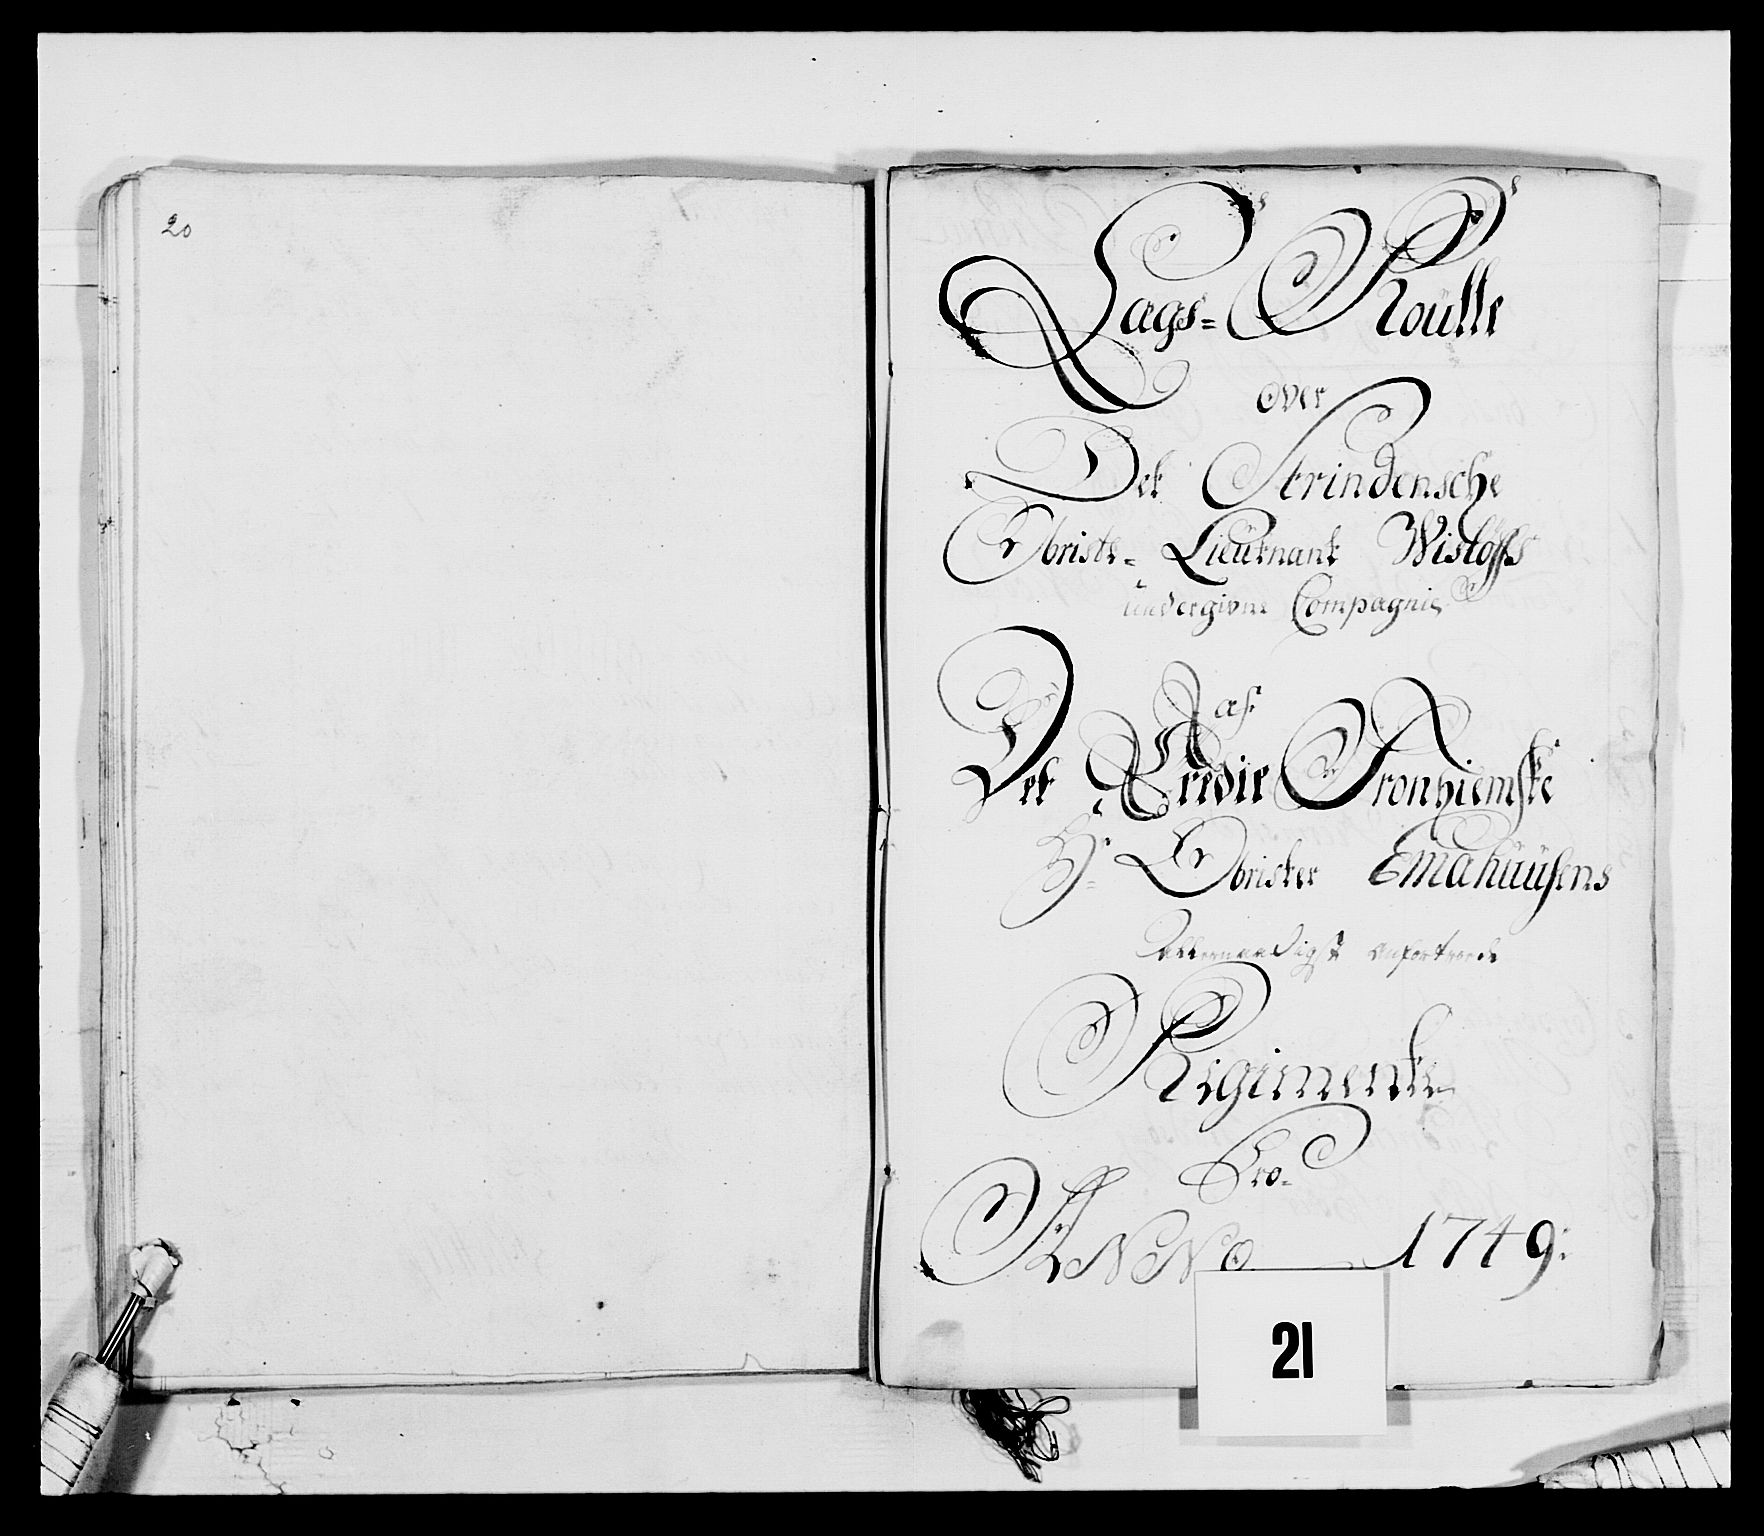 20
Lags= Roülle
over
Det Strindensche
Obriste= Lieutnant Wislöffs
undergivne Compagnie
af
Det Tredie Tronhiemske
Hr. Obrister Emahuüsens
allernaadigst anfortroede
Regimente
Pro=
ANNO 1749:
21